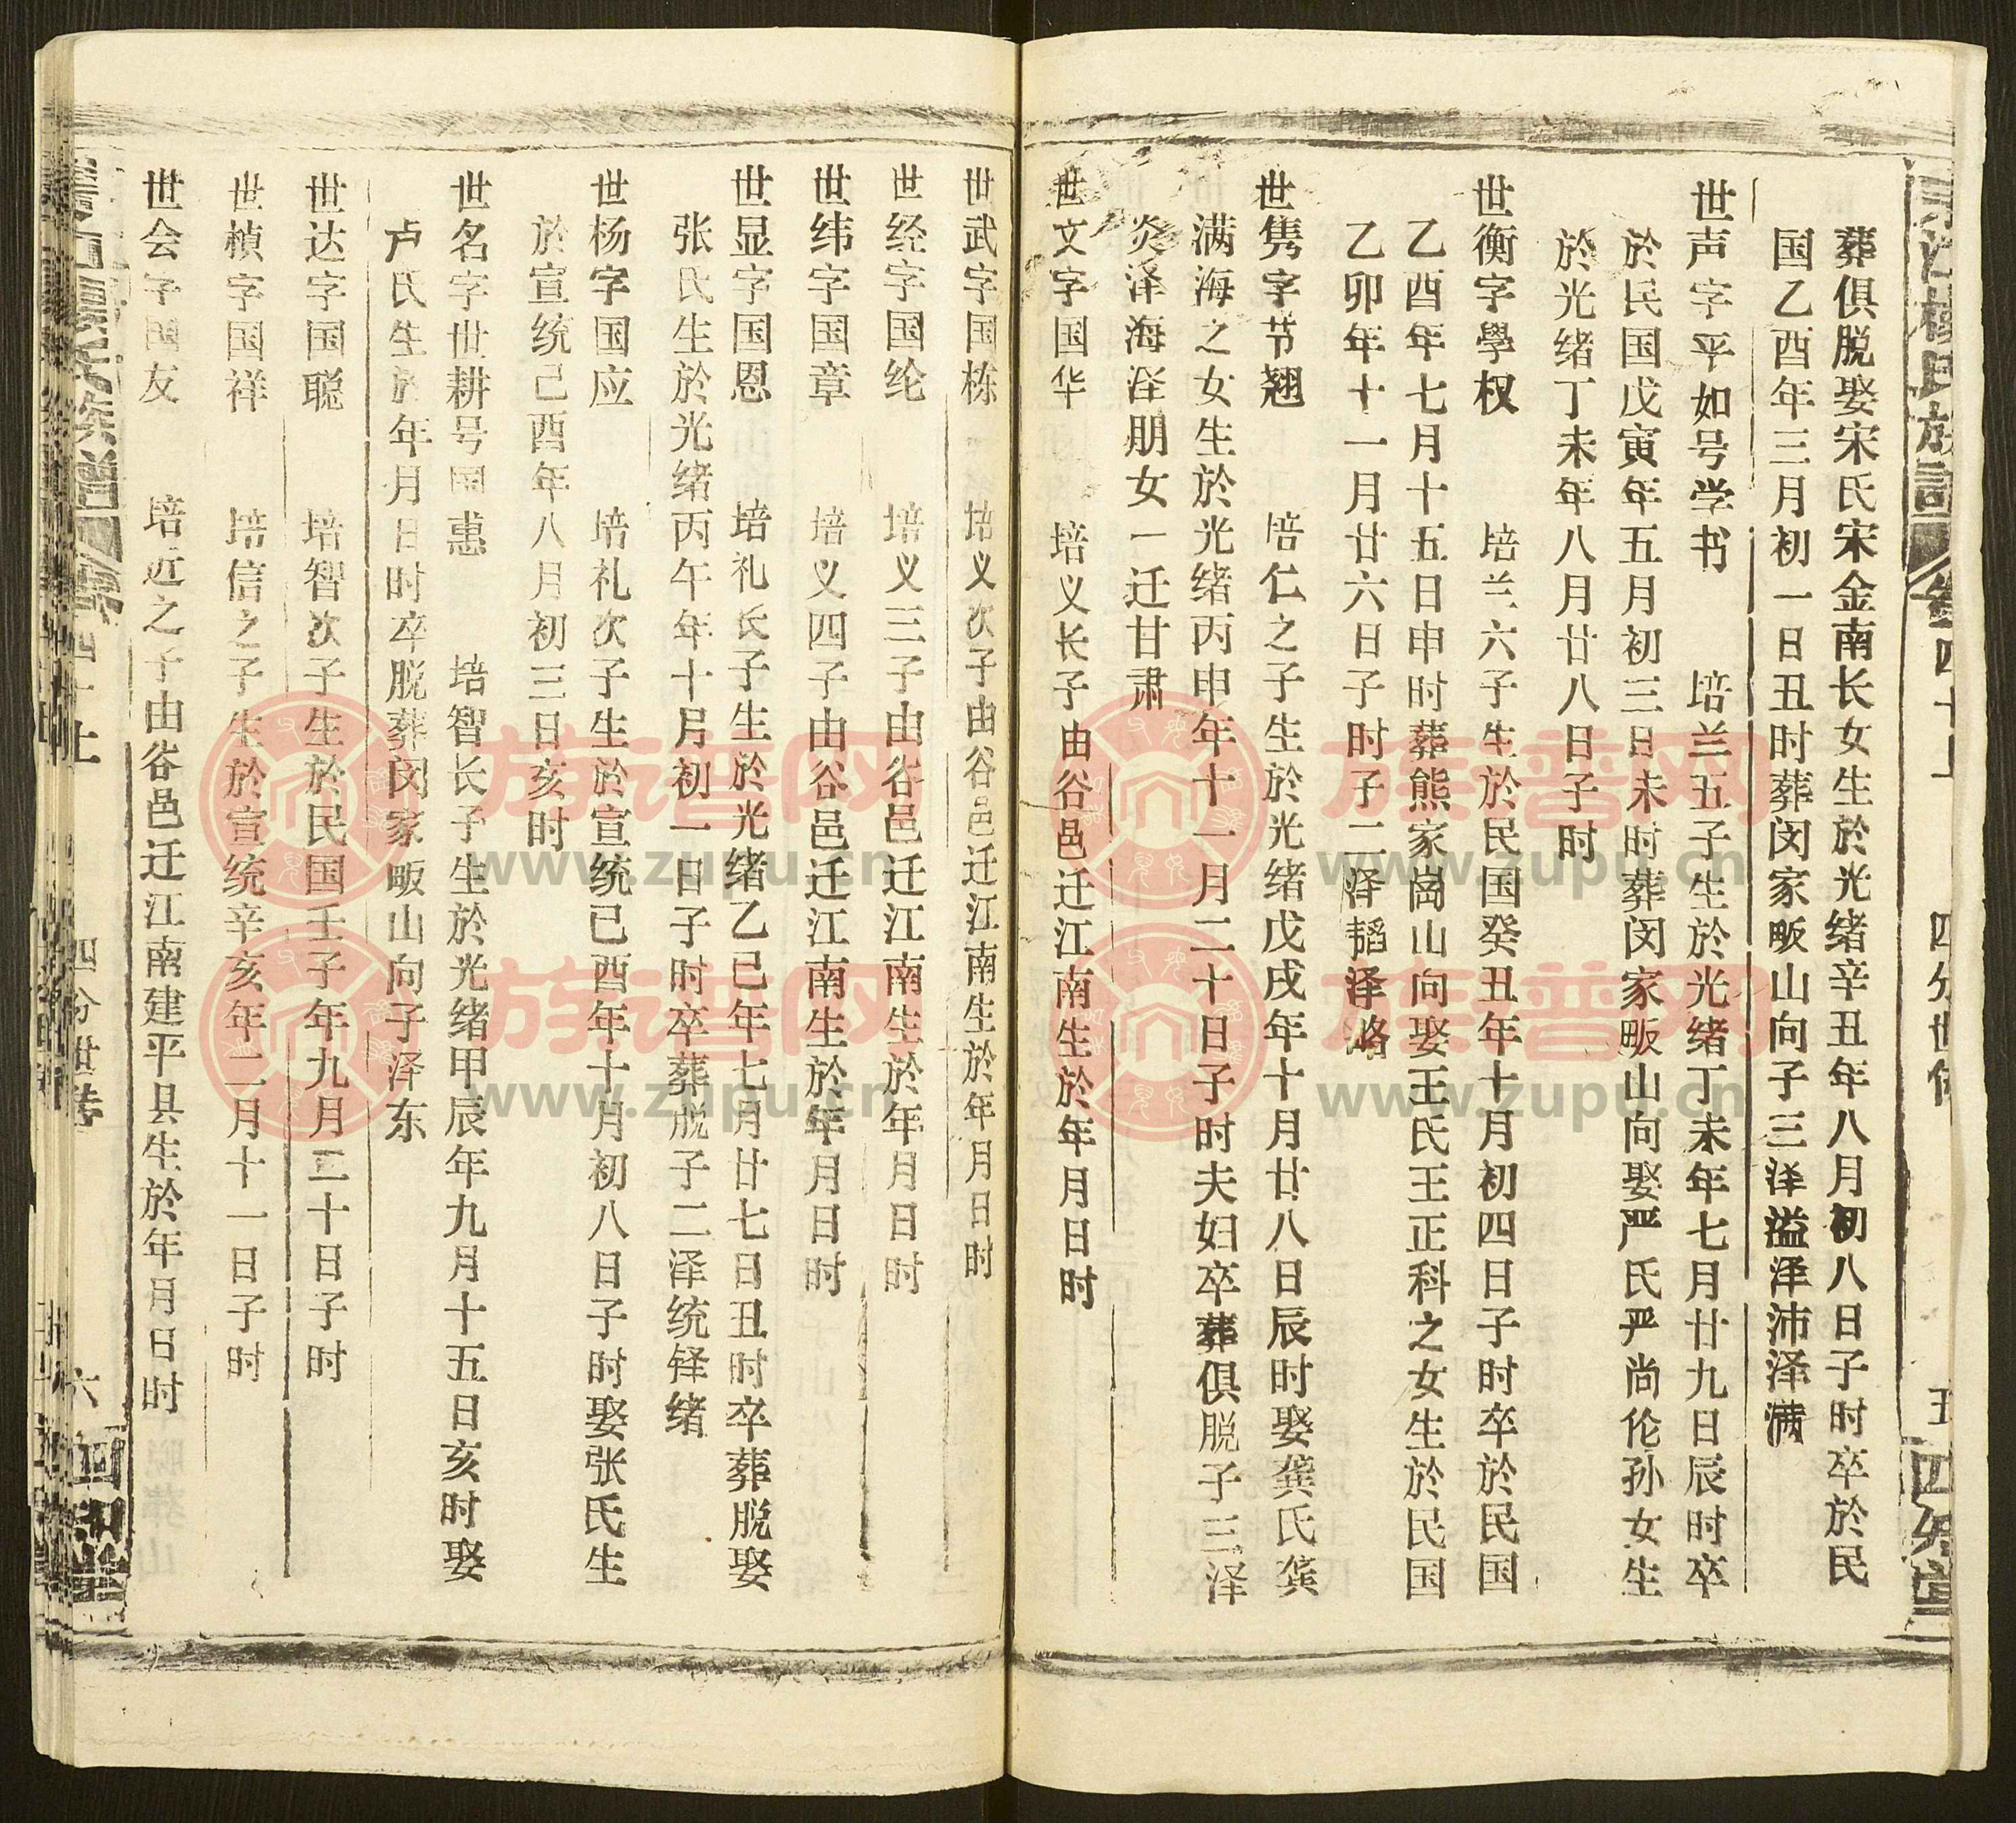 葬俱脱娶宋氏宋金南长女生於光绪辛丑年八月初八日子时卒於民
国乙酉年三月初一日丑时葬闵家畈山向子三泽溢泽沛泽满
世声字平如号学书 培兰五子生於光绪丁未年七月廿九日辰时卒
於民国戊寅年五月初三日未时葬闵家畈山向娶严氏严尚伦孙女生
於光绪丁未年八月廿八日子时
世衡字學权 培兰六子生於民国癸丑年十月初四日子时卒於民国
乙酉年七月十五日申时葬熊家崗山向娶王氏王正科之女生於民国
乙卯年十一月廿六日子时子二泽韬泽略
世隽字节翘 培仁之子生於光绪戊戌年十月廿八日辰时娶龚氏龚
满海之女生於光绪丙申年十一月二十日子时夫妇卒葬俱脱子三泽
炎泽海泽朋女一迁甘肃
世文字国华 培义长子由谷邑迁江南生於年月日时
世武字国栋 培义次子由谷邑迁江南生於年月日时
世经字国纶 培义三子由谷邑迁江南生於年月日时
世纬字国章 培义四子由谷邑迁江南生於年月日时
世显字国恩 培礼长子生於光绪乙巳年七月廿七日丑时卒葬脱娶
张氏生於光绪丙午年十月初一日子时卒葬脱子二泽统铎绪
世杨字国应 培礼次子生於宣统已酉年十月初八日子时娶张氏生
於宣统己酉年八月初三日亥时
世名字世耕号国惠 培智长子生於光绪甲辰年九月十五日亥时娶
卢氏生於年月日时卒脱葬闵家畈山向子泽东
世达字国聪 培智次子生於民国壬子年九月二十日子时
世桢字国祥 培信之子生於宣统辛亥年二月十一日子时
世会字国友 培近之子由谷邑迁江南建平县生於年月日时
四分世
六
族谱网
www.zupu.cn
族谱网
www.zupu.cn
族谱网
www.zupu.cn
族谱网
www.zupu.cn